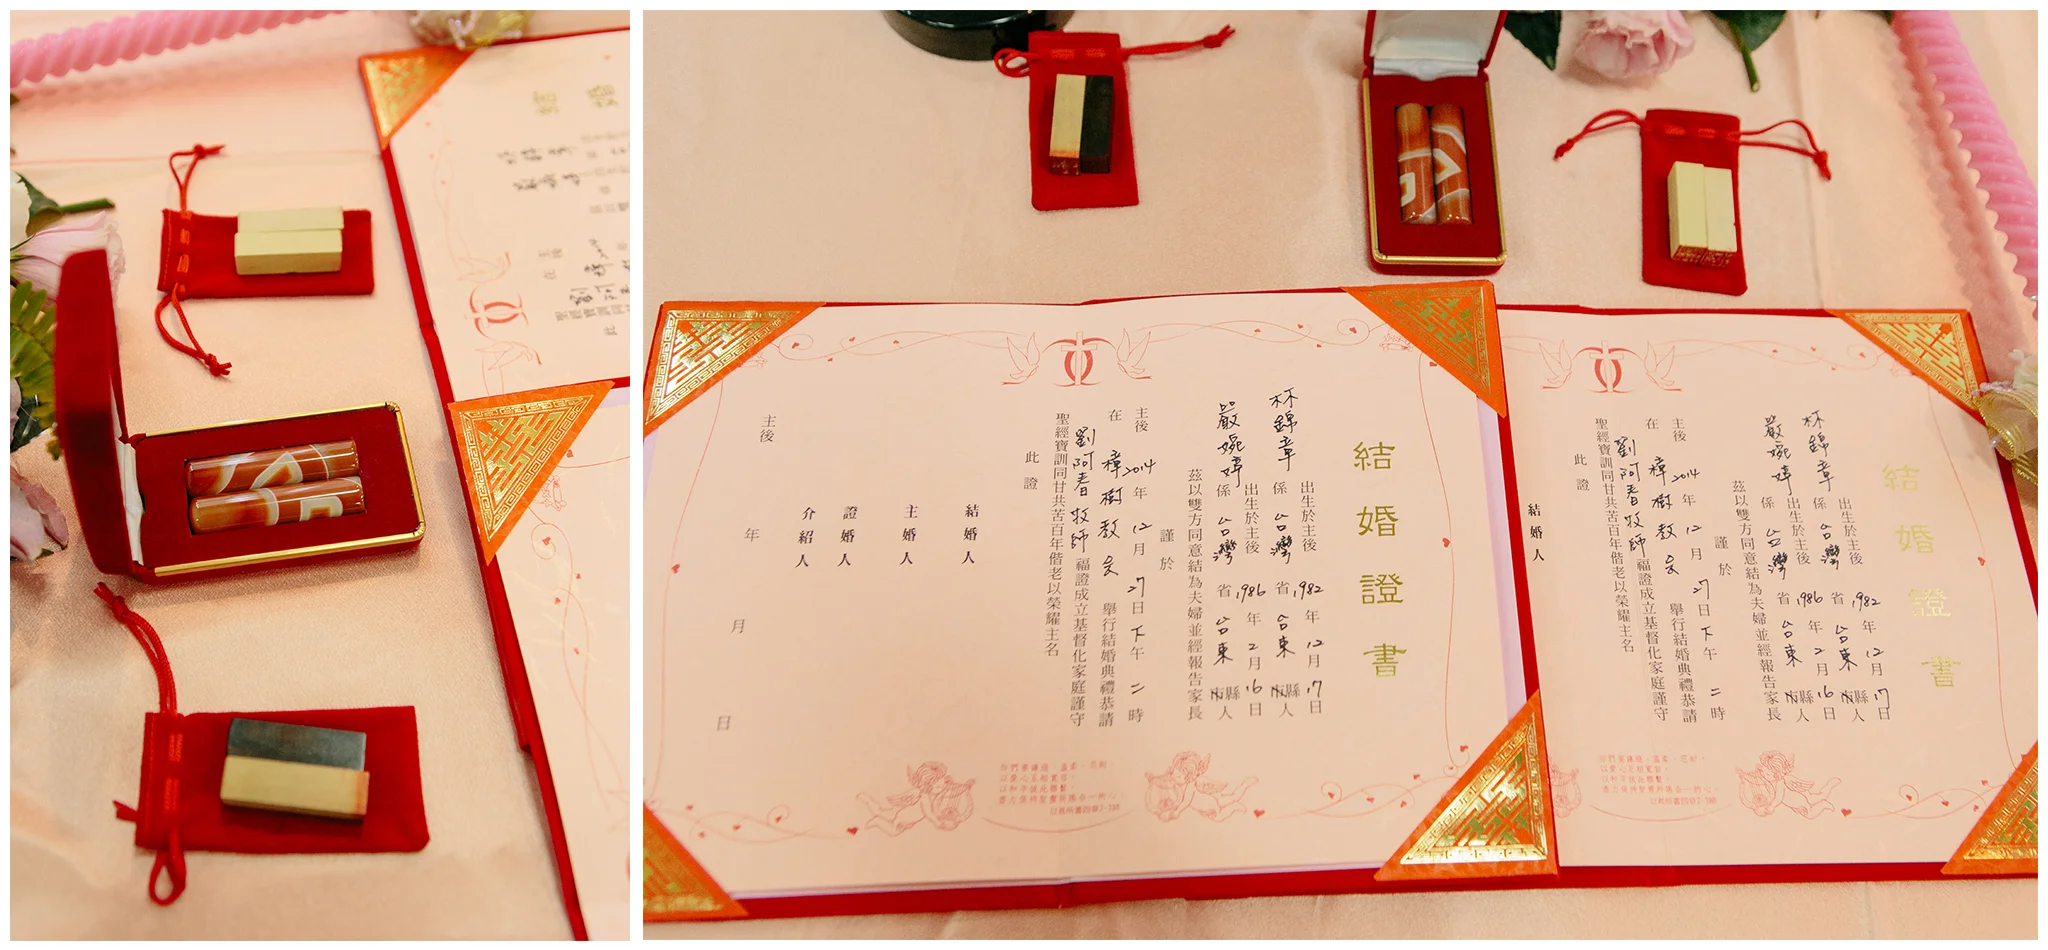 結婚證書
林錦章 出生於主後1982年12月17日
係台灣省台東縣人
嚴婉婷 出生於主後1986年2月16日
係台灣省台東縣人
茲以雙方同意結為夫婦並經報告家長
謹於
主後2014年12月27日下午二時
在樟樹教會 舉行結婚典禮恭請
劉阿春牧師 福證成立基督化家庭謹守
聖經寶訓同甘共苦百年偕老以榮耀主名
此證
結婚人
主婚人
證婚人
介紹人
主後 年 月 日
結婚證書
林錦章 出生於主後1982年12月17日
係台灣省台東縣人
嚴婉婷 出生於主後1986年2月16日
係台灣省台東縣人
茲以雙方同意結為夫婦並經報告家長
謹於
主後2014年12月27日下午二時
在樟樹教會 舉行結婚典禮恭請
劉阿春牧師 福證成立基督化家庭謹守
聖經寶訓同甘共苦百年偕老以榮耀主名
此證
結婚人